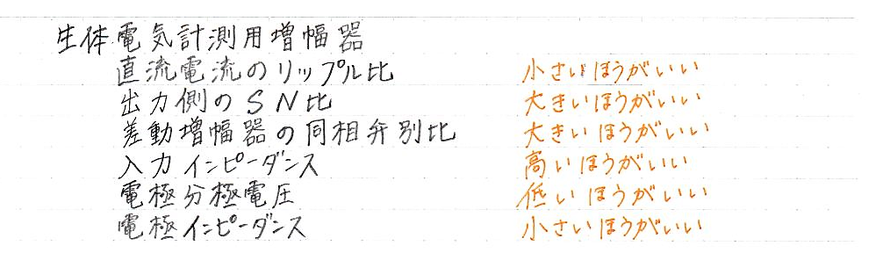 生体電気計測用増幅器
直流電流のリップル比 小さいほうがいい
出力側のSN比 大きいほうがいい
差動増幅器の同相弁別比 大きいほうがいい
入力インピーダンス 高いほうがいい
電極分極電圧 低いほうがいい
電極インピーダンス 小さいほうがいい